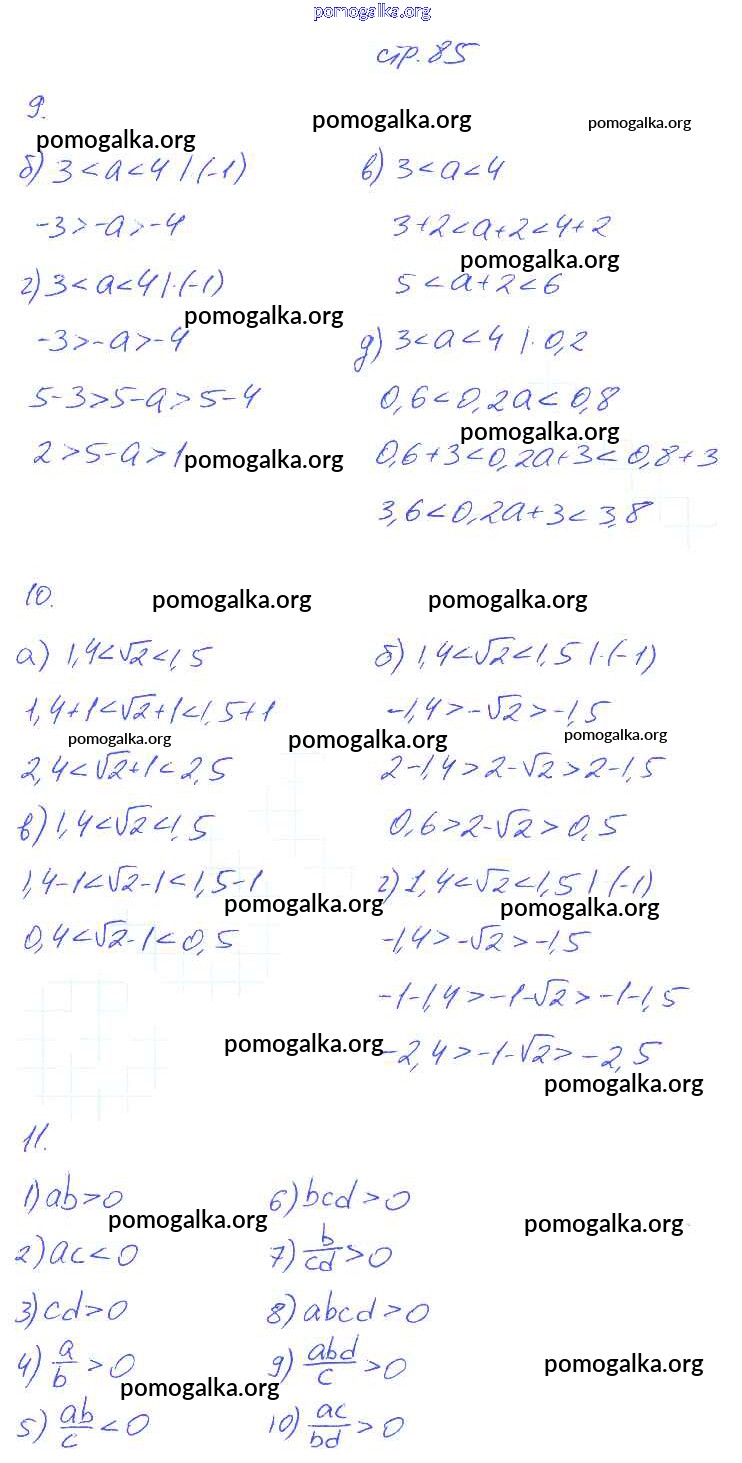 pomogalka.org
стр. 85
9.
pomogalka.org pomogalka.org pomogalka.org
б) 3 < a < 4 | (-1)
-3 > -a > -4
в) 3 < a < 4
3+2 < a+2 < 4+2
pomogalka.org
5 < a+2 < 6
г) 3 < a < 4 | · (-1)
pomogalka.org
-3 > -a > -4
5-3 > 5-a > 5-4
2 > 5-a > 1
pomogalka.org
д) 3 < a < 4 | · 0,2
0,6 < 0,2a < 0,8
pomogalka.org
0,6+3 < 0,2a+3 < 0,8+3
3,6 < 0,2a+3 < 3,8
10.
pomogalka.org pomogalka.org
а) 1,4 < √2 < 1,5
1,4+1 < √2+1 < 1,5+1
pomogalka.org pomogalka.org pomogalka.org
2,4 < √2+1 < 2,5
б) 1,4 < √2 < 1,5 | · (-1)
-1,4 > -√2 > -1,5
2-1,4 > 2-√2 > 2-1,5
0,6 > 2-√2 > 0,5
в) 1,4 < √2 < 1,5
1,4-1 < √2-1 < 1,5-1
pomogalka.org pomogalka.org
0,4 < √2-1 < 0,5
г) 1,4 < √2 < 1,5 | (-1)
-1,4 > -√2 > -1,5
-1-1,4 > -1-√2 > -1-1,5
pomogalka.org
-2,4 > -1-√2 > -2,5
pomogalka.org
11.
1) ab > 0
pomogalka.org pomogalka.org
2) ac < 0
3) cd > 0
4) a/b > 0
pomogalka.org pomogalka.org
5) ab/c < 0
6) bcd > 0
7) b/cd > 0
8) abcd > 0
9) abd/c > 0
10) ac/bd > 0